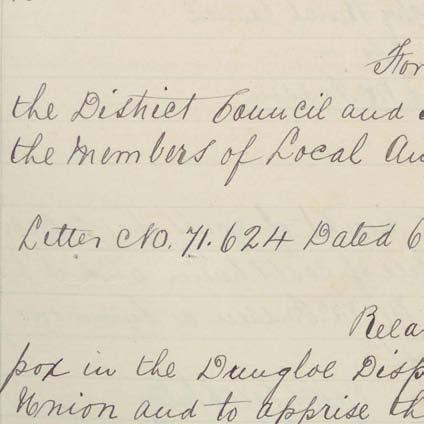 For
the District Council and
the Members of Local Au
Letter No. 71.624 Dated 6
Rela
pox in the Dungloe Disp
Union and to apprise th